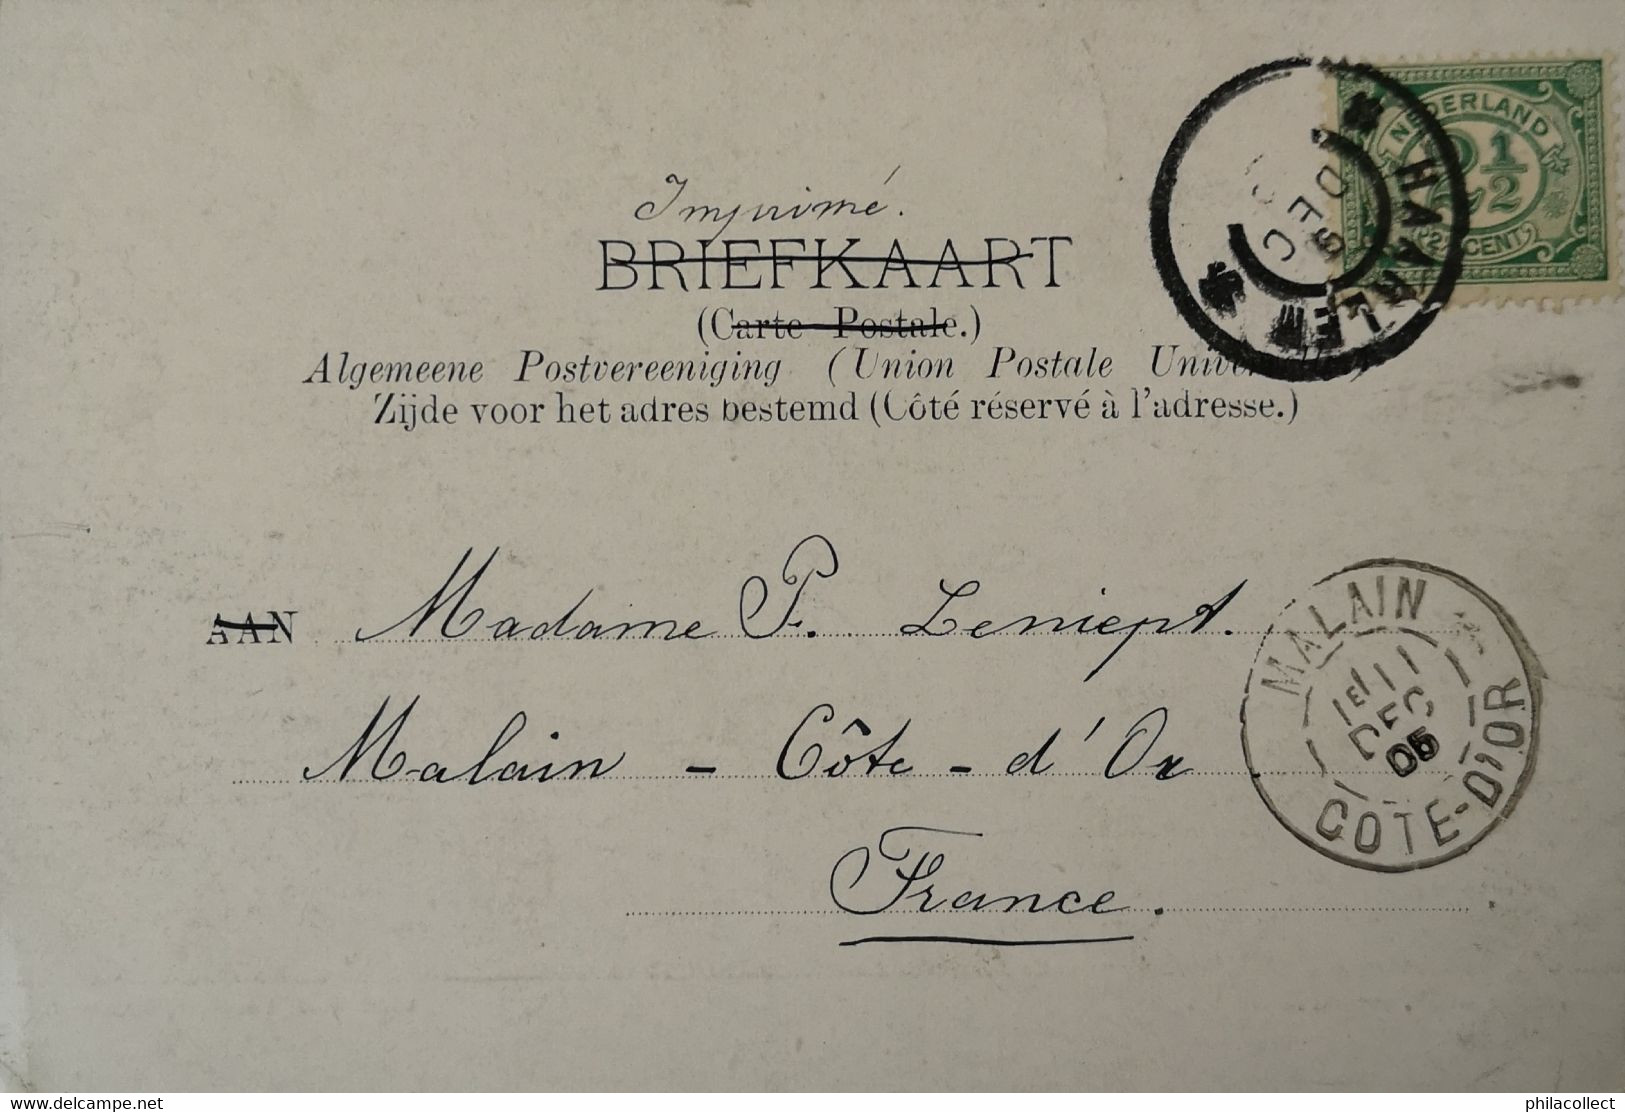 Imprimé.
BRIEFKAART
(Carte Postale.)
Algemeene Postvereeniging (Union Postale
Zijde voor het adres bestemd (Côté réservé à l'adresse.)
NEDERLAND
2 1/2
CENT
HAARLEM
9 DEC
AAN Madame P. Leniept.
Malain - Côte - d'Or
France.
MALAIN
11
DEC
05
COTE-D'OR
delcampe.net
philacollect